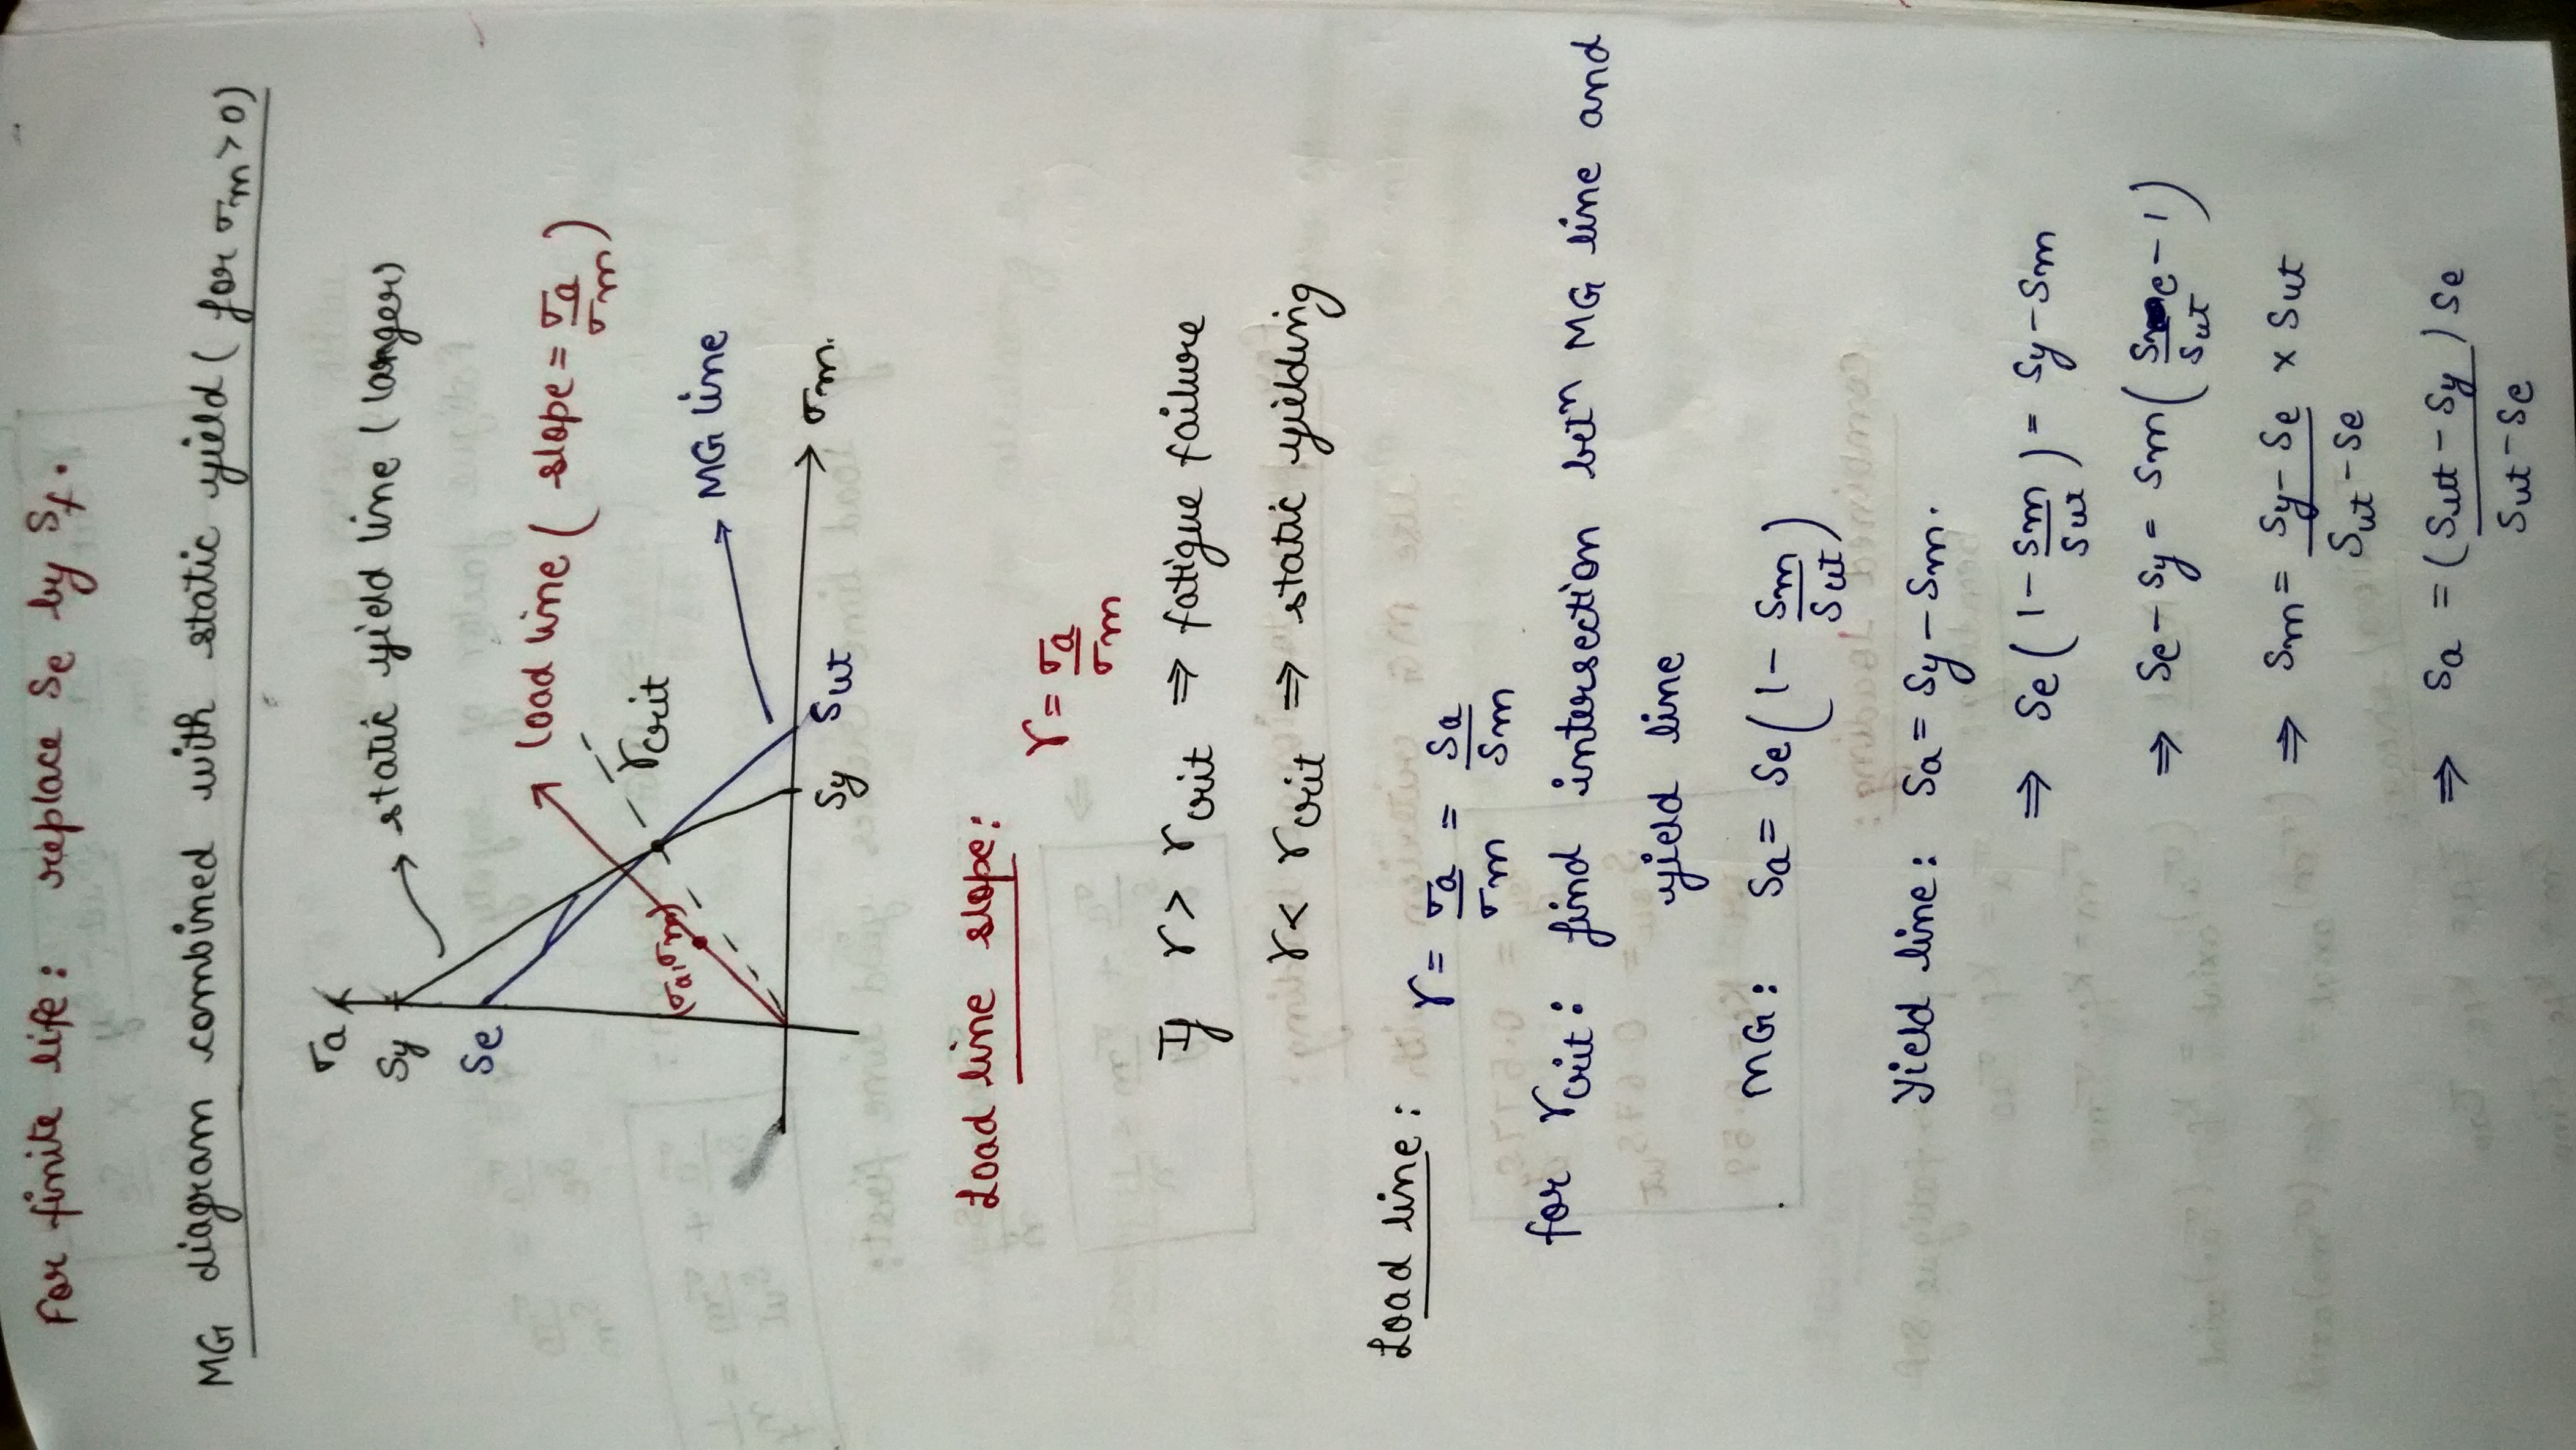 For finite life: replace Se by Sf.
MG diagram combined with static yield (for σm > 0)
σa
Sy
static yield line (langer)
Se
load line (slope = σa/σm)
rcrit
(σa, σm)
MG line
σm.
Sy Sut
Load line slope:
r = σa/σm
If r > rcrit ⇒ fatigue failure
r < rcrit ⇒ static yielding
Load line:
r = σa/σm = Sa/Sm
for rcrit: find intersection betⁿ MG line and
yield line
MG: Sa = Se(1 - Sm/Sut)
Yield line: Sa = Sy - Sm.
⇒ Se(1 - Sm/Sut) = Sy - Sm
⇒ Se - Sy = Sm(Se/Sut - 1)
⇒ Sm = (Sy - Se)/(Sut - Se) × Sut
⇒ Sa = (Sut - Sy)Se/(Sut - Se)